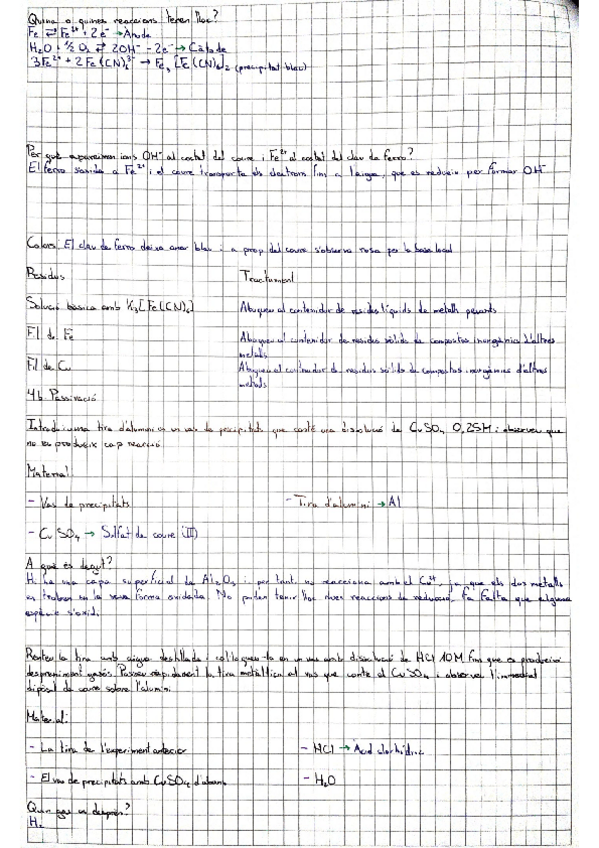 Quina o quines reaccions tenen lloc?
Fe ⇄ Fe²⁺ + 2e⁻ → Ànode
H₂O + ½ O₂ ⇄ 2OH⁻ - 2e⁻ → Càtode
3Fe²⁺ + 2Fe(CN)₆³⁻ → Fe₃[Fe(CN)₆]₂ (precipitat blau)
Per què apareixen ions OH⁻ al costat del coure i Fe²⁺ al costat del clau de ferro?
El ferro s'oxida a Fe²⁺ i el coure transporta els electrons fins a l'aigua, que es redueix per formar OH⁻
Colors: El clau de ferro deixa anar blau i a prop del coure s'observa rosa per la base local
Residus Tractament
Solució bàsica amb K₃[Fe(CN)₆] Aboqueu al contenidor de residus líquids de metalls pesants
Fil de Fe Aboqueu al contenidor de residus sòlids de compostos inorgànics d'altres
metalls
Fil de Cu Aboqueu al contenidor de residus sòlids de compostos inorgànics d'altres
metalls
4b Passivació
Introduïu una tira d'alumini en un vas de precipitats que conté una dissolució de CuSO₄ 0,25M i observeu que
no es produeix cap reacció
Material:
- Vas de precipitats - Tira d'alumini → Al
- CuSO₄ → Sulfat de coure (II)
A què és degut?
Hi ha una capa superficial de Al₂O₃ i per tant, no reacciona amb el Cu²⁺, ja que els dos metalls
es troben en la seva forma oxidada. No poden tenir lloc dues reaccions de reducció, fa falta que alguna
espècie s'oxidi
Renteu la tira amb aigua destil·lada i col·loqueu-la en un vas amb dissolució de HCl 10M fins que es produeixi
despreniment gasós. Passeu ràpidament la tira metàl·lica al vas que conté el CuSO₄ i observeu l'immediat
dipòsit de coure sobre l'alumini
Material:
- La tira de l'experiment anterior - HCl → Àcid clorhídric
- El vas de precipitats amb CuSO₄ d'abans - H₂O
Quin gas es desprèn?
H₂